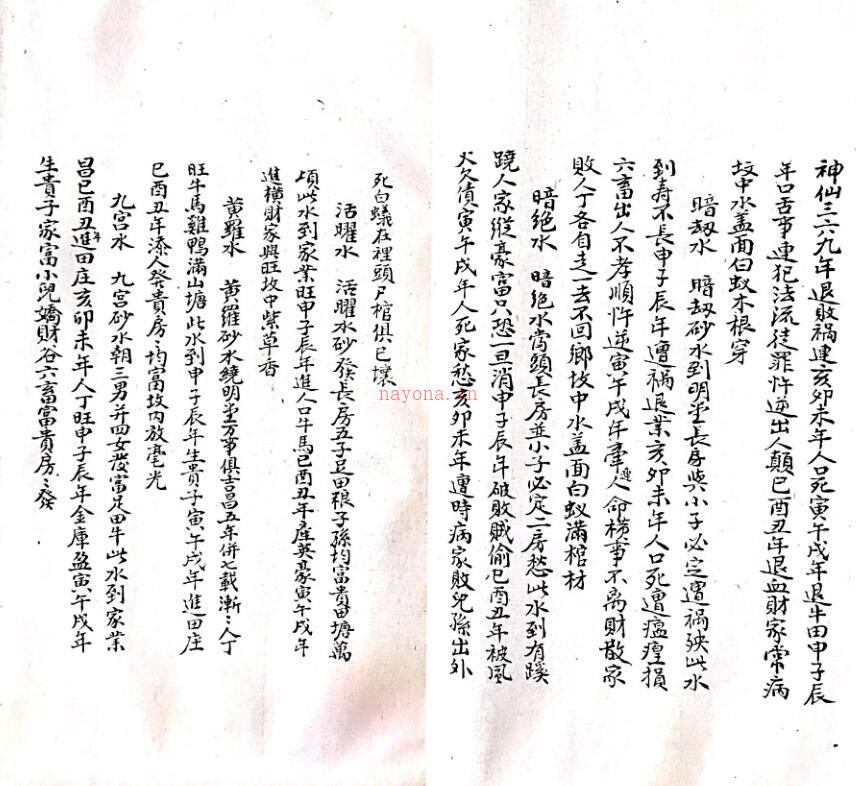 神仙三六九年退敗禍連亥卯未年人口死寅午戌年退牛田甲子辰
年口舌事連犯法流徒罪忤逆出人顛巳酉丑年退血財家常病
坟中水盖面白蚁木根穿
暗刼水 暗刼砂水到明堂長房與小子必定遭禍殃此水
到壽不長甲子辰年遭禍退業亥卯未年人口死遭瘟瘟損
六畜出人不孝順忤逆寅午戌年重連人命橫事不离財散家
敗人丁各自走一去不回鄉坟中水盖面白蚁滿棺材
暗絶水 暗絶水當頭長房並小子必定二房愁此水到有蹊
蹺人家縱豪富只恐一旦消甲子辰年破敗賊偷巳酉丑年被風
火欠債寅午戌年人死家愁亥卯未年遭時病家敗兒孫出外
死白蟻在裡頭尸棺俱已壞
活曜水 活曜水砂發長房五子足田粮子孫均富貴田塘萬
頃此水到家業旺申子辰年進人口牛馬巳酉丑年產英豪寅午戌年
進橫財家興旺坟中紫草香
黄羅水 黄羅砂水繞明堂万事俱吉昌五年併七載漸々人丁
旺牛馬雞鴨滿山塘此水到申子辰年生貴子寅午戌年進田庄
巳酉丑年添人發貴房々均富坟内放毫光
九宮水 九宮砂水朝三男并四女發富足田牛此水到家業
昌巳酉丑年進田庄亥卯未年人丁旺甲子辰年金庫盈寅午戌年
生貴子家富小兒嬌財谷六畜富貴房々發
nayona.cn